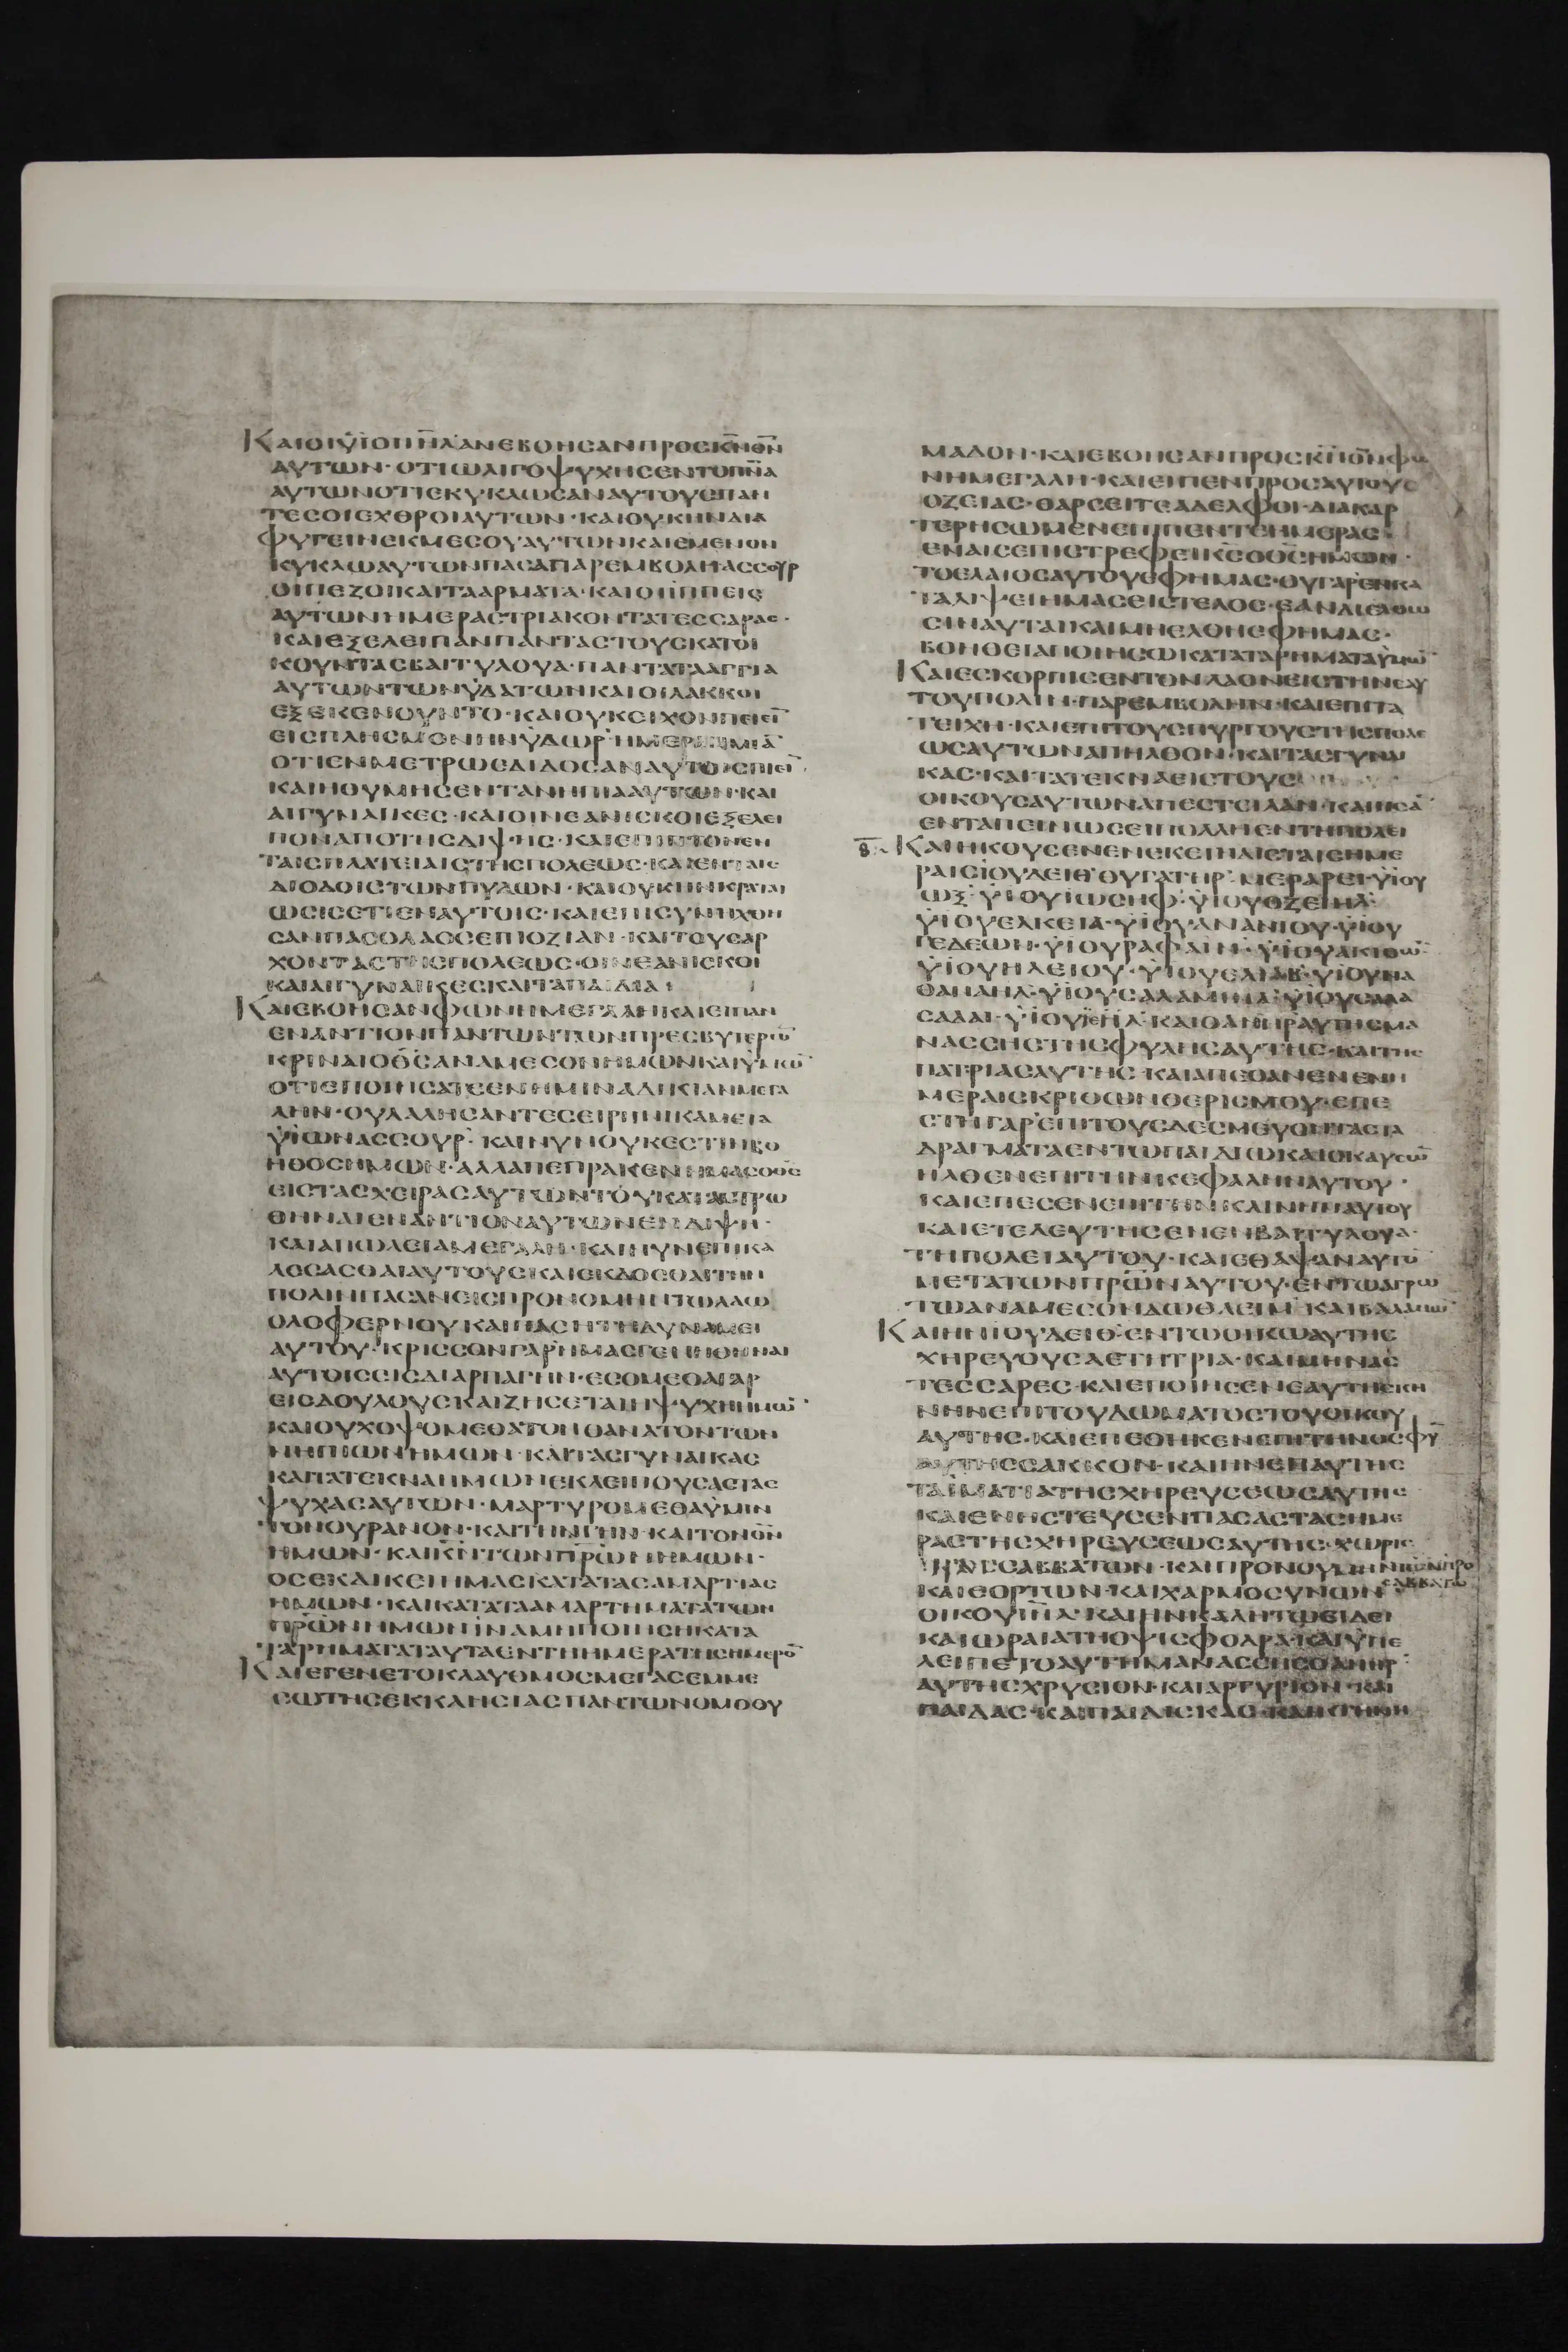 ΚΑΙΟΙΥΙΟΙΙΗΛΑΝΕΒΟΗСΑΝΠΡΟСΚΝΘΝ
ΑΥΤΩΝ·ΟΤΙΩΛΙΓΟΨΥΧΗСΕΝΤΟΠΝΑ
ΑΥΤΩΝΟΤΙΕΚΥΚΛΩСΑΝΑΥΤΟΥСΠΑΝ
ΤΕСΟΙΕΧΘΡΟΙΑΥΤΩΝ·ΚΑΙΟΥΚΗΝΔΙΑ
ΦΥΓΕΙΝΕΚΜΕСΟΥΑΥΤΩΝΚΑΙΕΜΕΝΟΝ
ΚΥΚΛΩΑΥΤΩΝΠΑСΑΠΑΡΕΜΒΟΛΗΑССΟΥΡ
ΟΙΠΕΖΟΙΚΑΙΤΑΑΡΜΑΤΑ·ΚΑΙΟΙΙΠΠΕΙС
ΑΥΤΩΝΗΜΕΡΑСΤΡΙΑΚΟΝΤΑΤΕССΑΡΑС·
ΚΑΙΕΞΕΛΕΙΠΑΝΠΑΝΤΑСΤΟΥСΚΑΤΟΙ
ΚΟΥΝΤΑСΒΑΙΤΥΛΟΥΑ·ΠΑΝΤΑΤΑΑΓΓΙΑ
ΑΥΤΩΝΤΩΝΥΔΑΤΩΝΚΑΙΟΙΛΑΚΚΟΙ
ΕΞΕΚΕΝΟΥΝΤΟ·ΚΑΙΟΥΚΕΙΧΟΝΠΕΙΕΙ̅
ΕΙСΠΛΗСΜΟΝΗΝΥΔΩΡ·ΗΜΕΡΑΝΜΙΑ̅
ΟΤΙΕΝΜΕΤΡΩΕΔΙΔΟСΑΝΑΥΤΟΙСΠΙΕΙ̅
ΚΑΙΗΟΥΜΗСΕΝΤΑΝΗΠΙΑΑΥΤΩΝ·ΚΑΙ
ΑΙΓΥΝΑΙΚΕС·ΚΑΙΟΙΝΕΑΝΙСΚΟΙΕΞΕΛΕΙ
ΠΟΝΑΠΟΤΗСΔΙΨΗС·ΚΑΙΕΠΙΠΤΟΝΕΝ
ΤΑΙСΠΛΑΤΕΙΑΙСΤΗСΠΟΛΕΩС·ΚΑΙΕΝΤΑΙС
ΔΙΟΔΟΙСΤΩΝΠΥΛΩΝ·ΚΑΙΟΥΚΗΝΚΡΑΤΑΙ
ΩСΙСΕΤΙΕΝΑΥΤΟΙС·ΚΑΙΕΠΙСΥΝΗΧΘΗ
СΑΝΠΑСΟΛΑΟСΕΠΙΟΖΙΑΝ·ΚΑΙΤΟΥСΑΡ
ΧΟΝΤΑСΤΗСΠΟΛΕΩС·ΟΙΝΕΑΝΙСΚΟΙ
ΚΑΙΑΙΓΥΝΑΙΚΕСΚΑΙΤΑΠΑΙΔΙΑ
ΚΑΙΕΒΟΗСΑΝΦΩΝΗΜΕΓΑΛΗΚΑΙΕΙΠΑΝ
ΕΝΑΝΤΙΟΝΠΑΝΤΩΝΤΩΝΠΡΕСΒΥΤΕΡΩ̅
ΚΡΙΝΑΙΟΘСΑΝΑΜΕСΟΝΗΜΩΝΚΑΙΥΜΩ̅
ΟΤΙΕΠΟΙΗСΑΤΕΕΝΗΜΙΝΑΔΙΚΙΑΝΜΕΓΑ
ΛΗΝ·ΟΥΛΑΛΗСΑΝΤΕСΕΙΡΗΝΙΚΑΜΕΤΑ
ΥΙΩΝΑССΟΥΡ·ΚΑΙΝΥΝΟΥΚΕСΤΙΝΒΟ
ΗΘΟСΗΜΩΝ·ΑΛΛΑΠΕΠΡΑΚΕΝΗΜΑСΟΘС
ΕΙСΤΑСΧΕΙΡΑСΑΥΤΩΝΤΟΥΚΑΤΑСΤΡΩ
ΘΗΝΑΙΕΝΑΝΤΙΟΝΑΥΤΩΝΕΝΔΙΨΗ·
ΚΑΙΑΠΩΛΕΙΑΜΕΓΑΛΗ·ΚΑΙΝΥΝΕΠΙΚΑ
ΛΕСΑСΘΑΙΑΥΤΟΥСΚΑΙΕΚΔΟСΘΑΙΤΗΝ
ΠΟΛΙΝΠΑСΑΝΕΙСΠΡΟΝΟΜΗΝΤΩΛΑΩ
ΟΛΟΦΕΡΝΟΥΚΑΙΠΑСΗΤΗΔΥΝΑΜΕΙ
ΑΥΤΟΥ·ΚΡΙССΟΝΓΑΡΗΜΑСΓΕΝΗΘΗΝΑΙ
ΑΥΤΟΙСΕΙСΔΙΑΡΠΑΓΗΝ·ΕСΟΜΕΘΑΓΑΡ
ΕΙСΔΟΥΛΟΥСΚΑΙΖΗСΕΤΑΙΗΨΥΧΗΗΜΩ̅·
ΚΑΙΟΥΚΟΨΟΜΕΘΑΤΟΝΘΑΝΑΤΟΝΤΩΝ
ΝΗΠΙΩΝΗΜΩΝ·ΚΑΙΤΑСΓΥΝΑΙΚΑС
ΚΑΙΤΑΤΕΚΝΑΗΜΩΝΕΚΛΕΙΠΟΥСΑСΤΑС
ΨΥΧΑСΑΥΤΩΝ·ΜΑΡΤΥΡΟΜΕΘΑΥΜΙΝ
ΤΟΝΟΥΡΑΝΟΝ·ΚΑΙΤΗΝΓΗΝ·ΚΑΙΤΟΝΘΝ
ΗΜΩΝ·ΚΑΙΚΝΤΩΝΠΡΩΝΗΜΩΝ·
ΟСΕΚΔΙΚΕΙΗΜΑСΚΑΤΑΤΑСΑΜΑΡΤΙΑС
ΗΜΩΝ·ΚΑΙΚΑΤΑΤΑΑΜΑΡΤΗΜΑΤΑΤΩΝ
ΠΡΩΝΗΜΩΝΙΝΑΜΗΠΟΙΗСΗΚΑΤΑ
ΤΑΡΗΜΑΤΑΤΑΥΤΑΕΝΤΗΗΜΕΡΑΤΗСΗΜΕΡΟ̅
ΚΑΙΕΓΕΝΕΤΟΚΛΑΥΘΜΟСΜΕΓΑСΕΜΜΕ
СΩΤΗСΕΚΚΛΗСΙΑСΠΑΝΤΩΝΟΜΟΘΥ
ΜΑΔΟΝ·ΚΑΙΕΒΟΗСΑΝΠΡΟСΚΝΤΟΝΘΝΦΩ
ΝΗΜΕΓΑΛΗ·ΚΑΙΕΙΠΕΝΠΡΟСΑΥΤΟΥС
ΟΖΕΙΑС·ΘΑΡСΕΙΤΕΑΔΕΛΦΟΙ·ΔΙΑΚΑΡ
ΤΕΡΗСΩΜΕΝΕΠΙΠΕΝΤΕΗΜΕΡΑС
ΕΝΑΙСΕΠΙСΤΡΕΦΕΙΚСΟΘСΗΜΩΝ·
ΤΟΕΛΑΙΟСΑΥΤΟΥΕΦΗΜΑС·ΟΥΓΑΡΕΝΚΑ
ΤΑΛΙΨΕΙΗΜΑСΕΙСΤΕΛΟС·ΕΑΝΔΙΕΛΘΩ
СΙΝΑΥΤΑΙΚΑΙΜΗΕΛΘΗΕΦΗΜΑС·
ΒΟΗΘΕΙΑΠΟΙΗСΩΚΑΤΑΤΑΡΗΜΑΤΑΥΜΩ̅
ΚΑΙΕСΚΟΡΠΙСΕΝΤΟΝΛΑΟΝΕΙСΤΗΝΕΑΥ
ΤΟΥΠΟΛΙΝ·ΠΑΡΕΜΒΟΛΗΝ·ΚΑΙΕΠΙΤΑ
ΤΕΙΧΗ·ΚΑΙΕΠΙΤΟΥСΠΥΡΓΟΥСΤΗСΠΟΛΕ
ΩСΑΥΤΩΝΑΠΗΛΘΟΝ·ΚΑΙΤΑСΓΥΝΑΙ
ΚΑС·ΚΑΙΤΑΤΕΚΝΑΕΙСΤΟΥС
ΟΙΚΟΥСΑΥΤΩΝΑΠΕСΤΕΙΛΑΝ·ΚΑΙΗСΑ̅
ΕΝΤΑΠΕΙΝΩСΕΙΠΟΛΛΗΕΝΤΗΠΟΛΕΙ
Η̅ ΚΑΙΗΚΟΥСΕΝΕΝΕΚΕΙΝΑΙСΤΑΙСΗΜΕ
ΡΑΙСΙΟΥΔΕΙΘΘΥΓΑΤΗΡ·ΜΕΡΑΡΕΙ·ΥΙΟΥ
ΩΞ·ΥΙΟΥΙΩСΗΦ·ΥΙΟΥΟΖΕΙΗΛ·
ΥΙΟΥΕΛΚΕΙΑ·ΥΙΟΥΑΝΑΝΙΟΥ·ΥΙΟΥ
ΓΕΔΕΩΝ·ΥΙΟΥΡΑΦΑΙΝ·ΥΙΟΥΑΚΙΘΩ̅·
ΥΙΟΥΗΛΕΙΟΥ·ΥΙΟΥΕΛΙΑΒ·ΥΙΟΥΝΑ
ΘΑΝΑΗΛ·ΥΙΟΥСΑΛΑΜΙΗΛ·ΥΙΟΥСΑΡΑ
СΑΔΑΙ·ΥΙΟΥΙΗΛ·ΚΑΙΟΑΝΗΡΑΥΤΗСΜΑ
ΝΑССΗСΤΗСΦΥΛΗСΑΥΤΗС·ΚΑΙΤΗС
ΠΑΤΡΙΑСΑΥΤΗС·ΚΑΙΑΠΕΘΑΝΕΝΕΝΗ
ΜΕΡΑΙСΚΡΙΘΩΝΘΕΡΙСΜΟΥ·ΕΠΕ
СΤΗΓΑΡΕΠΙΤΟΥСΔΕСΜΕΥΟΝΤΑСΤΑ
ΔΡΑΓΜΑΤΑΕΝΤΩΠΑΙΔΙΩΚΑΙΟΚΑΥСΩ̅
ΗΛΘΕΝΕΠΙΤΗΝΚΕΦΑΛΗΝΑΥΤΟΥ·
ΚΑΙΕΠΕСΕΝΕΠΙΤΗΝΚΛΙΝΗΝΑΥΤΟΥ
ΚΑΙΕΤΕΛΕΥΤΗСΕΝΕΝΒΑΙΤΥΛΟΥΑ·
ΤΗΠΟΛΕΙΑΥΤΟΥ·ΚΑΙΕΘΑΨΑΝΑΥΤΟ̅
ΜΕΤΑΤΩΝΠΡΩΝΑΥΤΟΥ·ΕΝΤΩΑΓΡΩ
ΤΩΑΝΑΜΕСΟΝΔΩΘΑΕΙΜ·ΚΑΙΒΑΛΑΜΩ̅·
ΚΑΙΗΝΙΟΥΔΕΙΘ·ΕΝΤΩΟΙΚΩΑΥΤΗС
ΧΗΡΕΥΟΥСΑΕΤΗΤΡΙΑ·ΚΑΙΜΗΝΑС
ΤΕССΑΡΕС·ΚΑΙΕΠΟΙΗСΕΝΕΑΥΤΗСΚΗ
ΝΗΝΕΠΙΤΟΥΔΩΜΑΤΟСΤΟΥΟΙΚΟΥ
ΑΥΤΗС·ΚΑΙΕΠΕΘΗΚΕΝΕΠΙΤΗΝΟСΦΥ̅
ΑΥΤΗССΑΚΚΟΝ·ΚΑΙΗΝΕΠΑΥΤΗС
ΤΑΙΜΑΤΙΑΤΗСΧΗΡΕΥСΕΩСΑΥΤΗС
ΚΑΙΕΝΗСΤΕΥСΕΝΠΑСΑСΤΑСΗΜΕ
ΡΑСΤΗСΧΗΡΕΥСΕΩСΑΥΤΗС·ΧΩΡΙС
СΑΒΒΑΤΩΝ·ΚΑΙΠΡΟΝΟΥΜΗΝΙΩΝ
ΚΑΙΕΟΡΤΩΝ·ΚΑΙΧΑΡΜΟСΥΝΩΝ
ΟΙΚΟΥΙΗΛ·ΚΑΙΗΝΚΑΛΗΤΩΕΙΔΕΙ
ΚΑΙΩΡΑΙΑΤΗΟΨΙСΦΟΔΡΑ·ΚΑΙΥΠΕ
ΛΕΙΠΕΤΟΑΥΤΗΜΑΝΑССΗСΟΑΝΗΡ·
ΑΥΤΗСΧΡΥСΙΟΝ·ΚΑΙΑΡΓΥΡΙΟΝ·ΚΑΙ
ΠΑΙΔΑС·ΚΑΙΠΑΙΔΙСΚΑС·ΚΑΙΚΤΗΝΗ